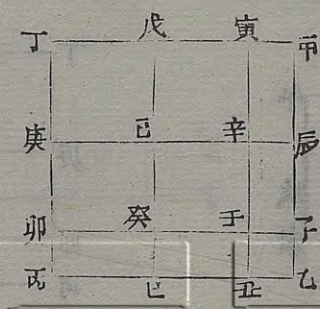 丁 戊 寅 甲
庚 己 辛 辰
卯 癸 子
丙 巳 丑 乙